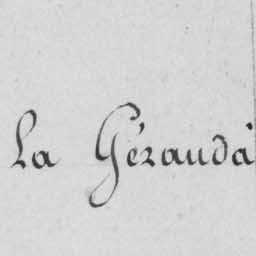 La Gérauda